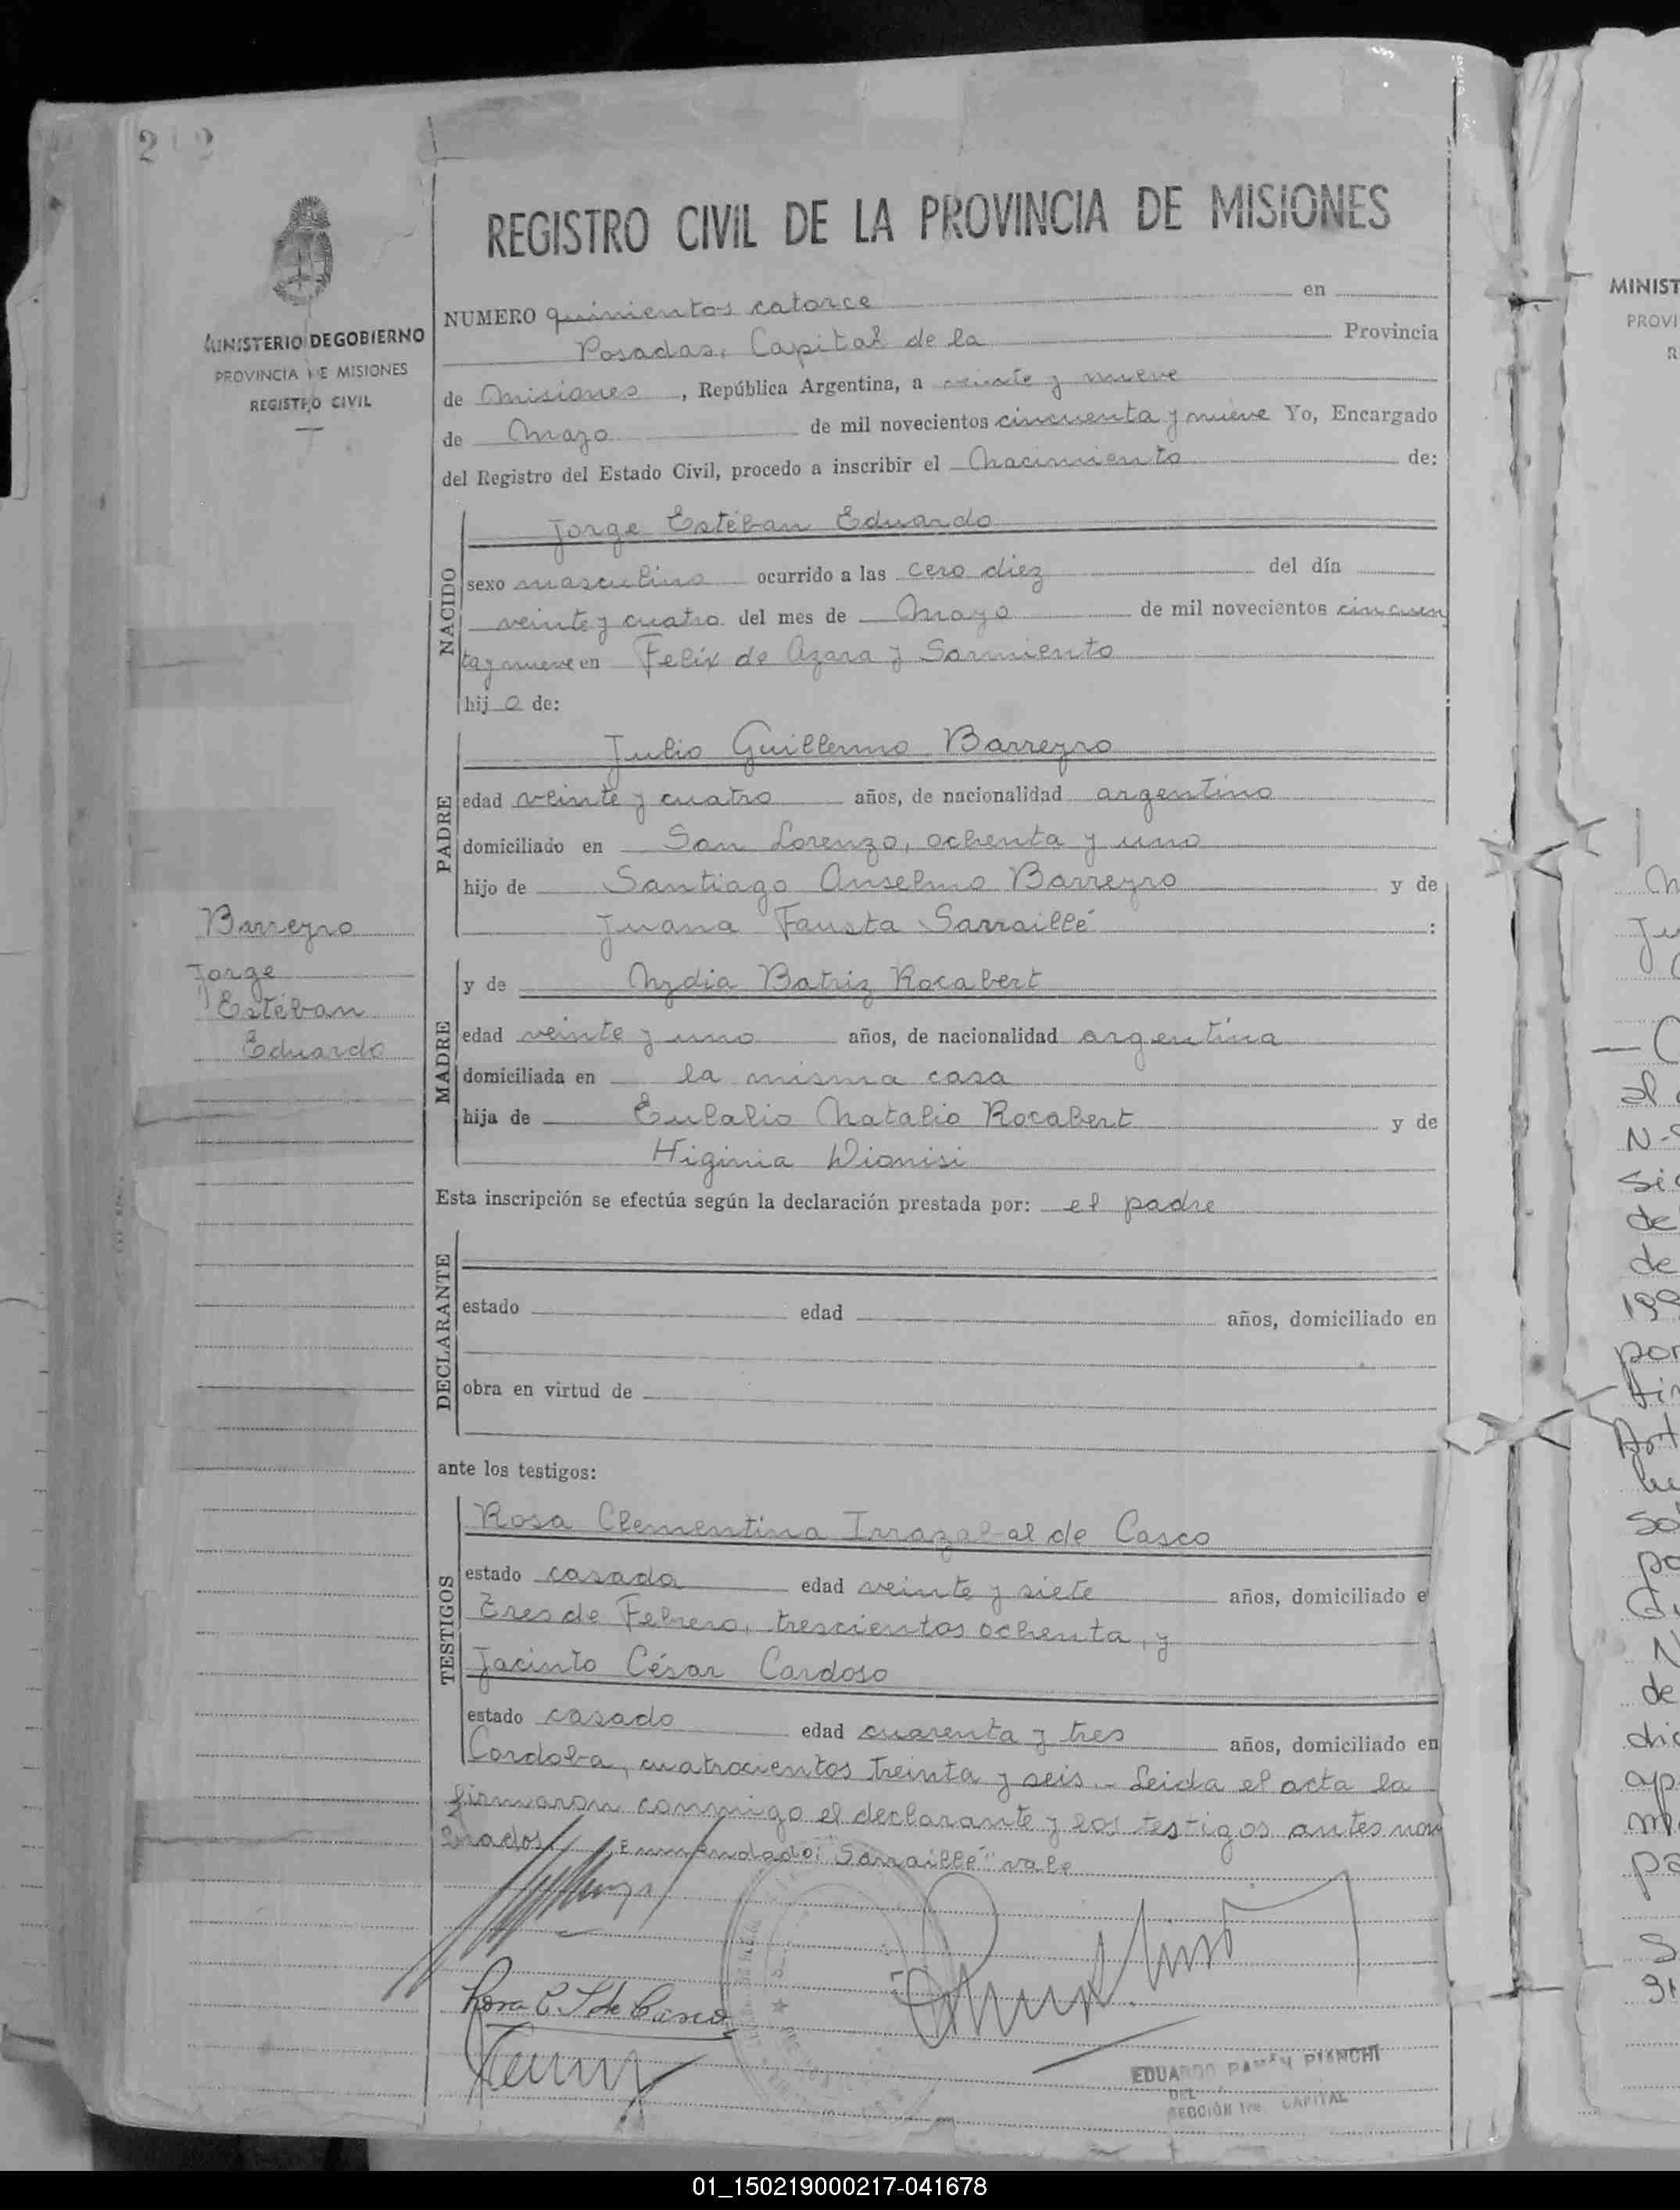 2 2
MINISTERIO DE GOBIERNO
PROVINCIA DE MISIONES
REGISTRO CIVIL
Barreyro
Jorge
Estéban
Eduardo
REGISTRO CIVIL DE LA PROVINCIA DE MISIONES
NUMERO quinientos catorce en
Posadas, Capital de la Provincia
de Misiones, República Argentina, a veinte y nueve
de Mayo de mil novecientos cincuenta y nueve Yo, Encargado
del Registro del Estado Civil, procedo a inscribir el Nacimiento de:
NACIDO
Jorge Estéban Eduardo
sexo masculino ocurrido a las cero diez del día
veinte y cuatro del mes de Mayo de mil novecientos cincuen
ta y nueve en Felix de Azara y Sarmiento
hijo de:
PADRE
Julio Guillermo Barreyro
edad veinte y cuatro años, de nacionalidad argentino
domiciliado en San Lorenzo, ochenta y uno
hijo de Santiago Anselmo Barreyro y de
Juana Fausta Sarraillé :
MADRE
y de Nydia Batriz Rocabert
edad veinte y uno años, de nacionalidad argentina
domiciliada en la misma casa
hija de Eulalio Natalio Rocabert y de
Higinia Dionisi
Esta inscripción se efectúa según la declaración prestada por: el padre
DECLARANTE
estado edad años, domiciliado en
obra en virtud de
ante los testigos:
TESTIGOS
Rosa Clementina Irrazabal de Casco
estado casada edad veinte y siete años, domiciliado e
Tres de Febrero, trescientos ochenta, y
Jacinto César Cardoso
estado casado edad cuarenta y tres años, domiciliado en
Cordoba, cuatrocientos treinta y seis.- Leida el acta la
firmaron conmigo el declarante y los testigos antes nom
brados. Enmendado: "Sarraillé" vale
Rosa C. I. de Casco
EDUARDO RAMÓN BIANCHI
DEL
SECCIÓN 1ra. CAPITAL
MINIST
PROVI
R
de
de
199
por
01_150219000217-041678